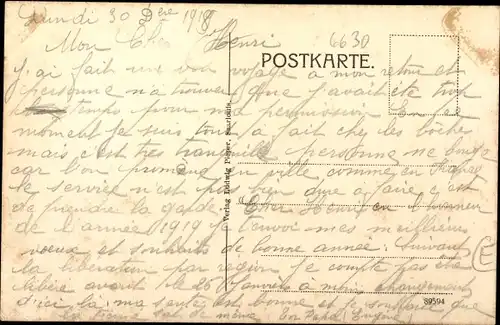 Lundi 30 Xbre 1918
Mon Cher Henri
6630
POSTKARTE.
J'ai fait un bon voyage à mon retour et
personne n'a trouvé que j'avait été trop
temps pour ma permission En ce
moment je suis tout à fait chez les boches
mais c'est très tranquille personne ne bouge
car bon promené en ville comme en France
le service n'est pas bien dure à faire c'est
de prendre la garde. Cher Henri en l'honneur
de l'année 1919 je t'envoi mes meilleures
voeux et souhaits de bonne année. Suivant
la libération par région je compte pas être
libéré avant le 26 janvier à moin changement
d'ici la; ma santé est bonne et je souhaite que
la tienne soit de même Ton
Verlag Ludwig Pieper, Saarlouis.
39594